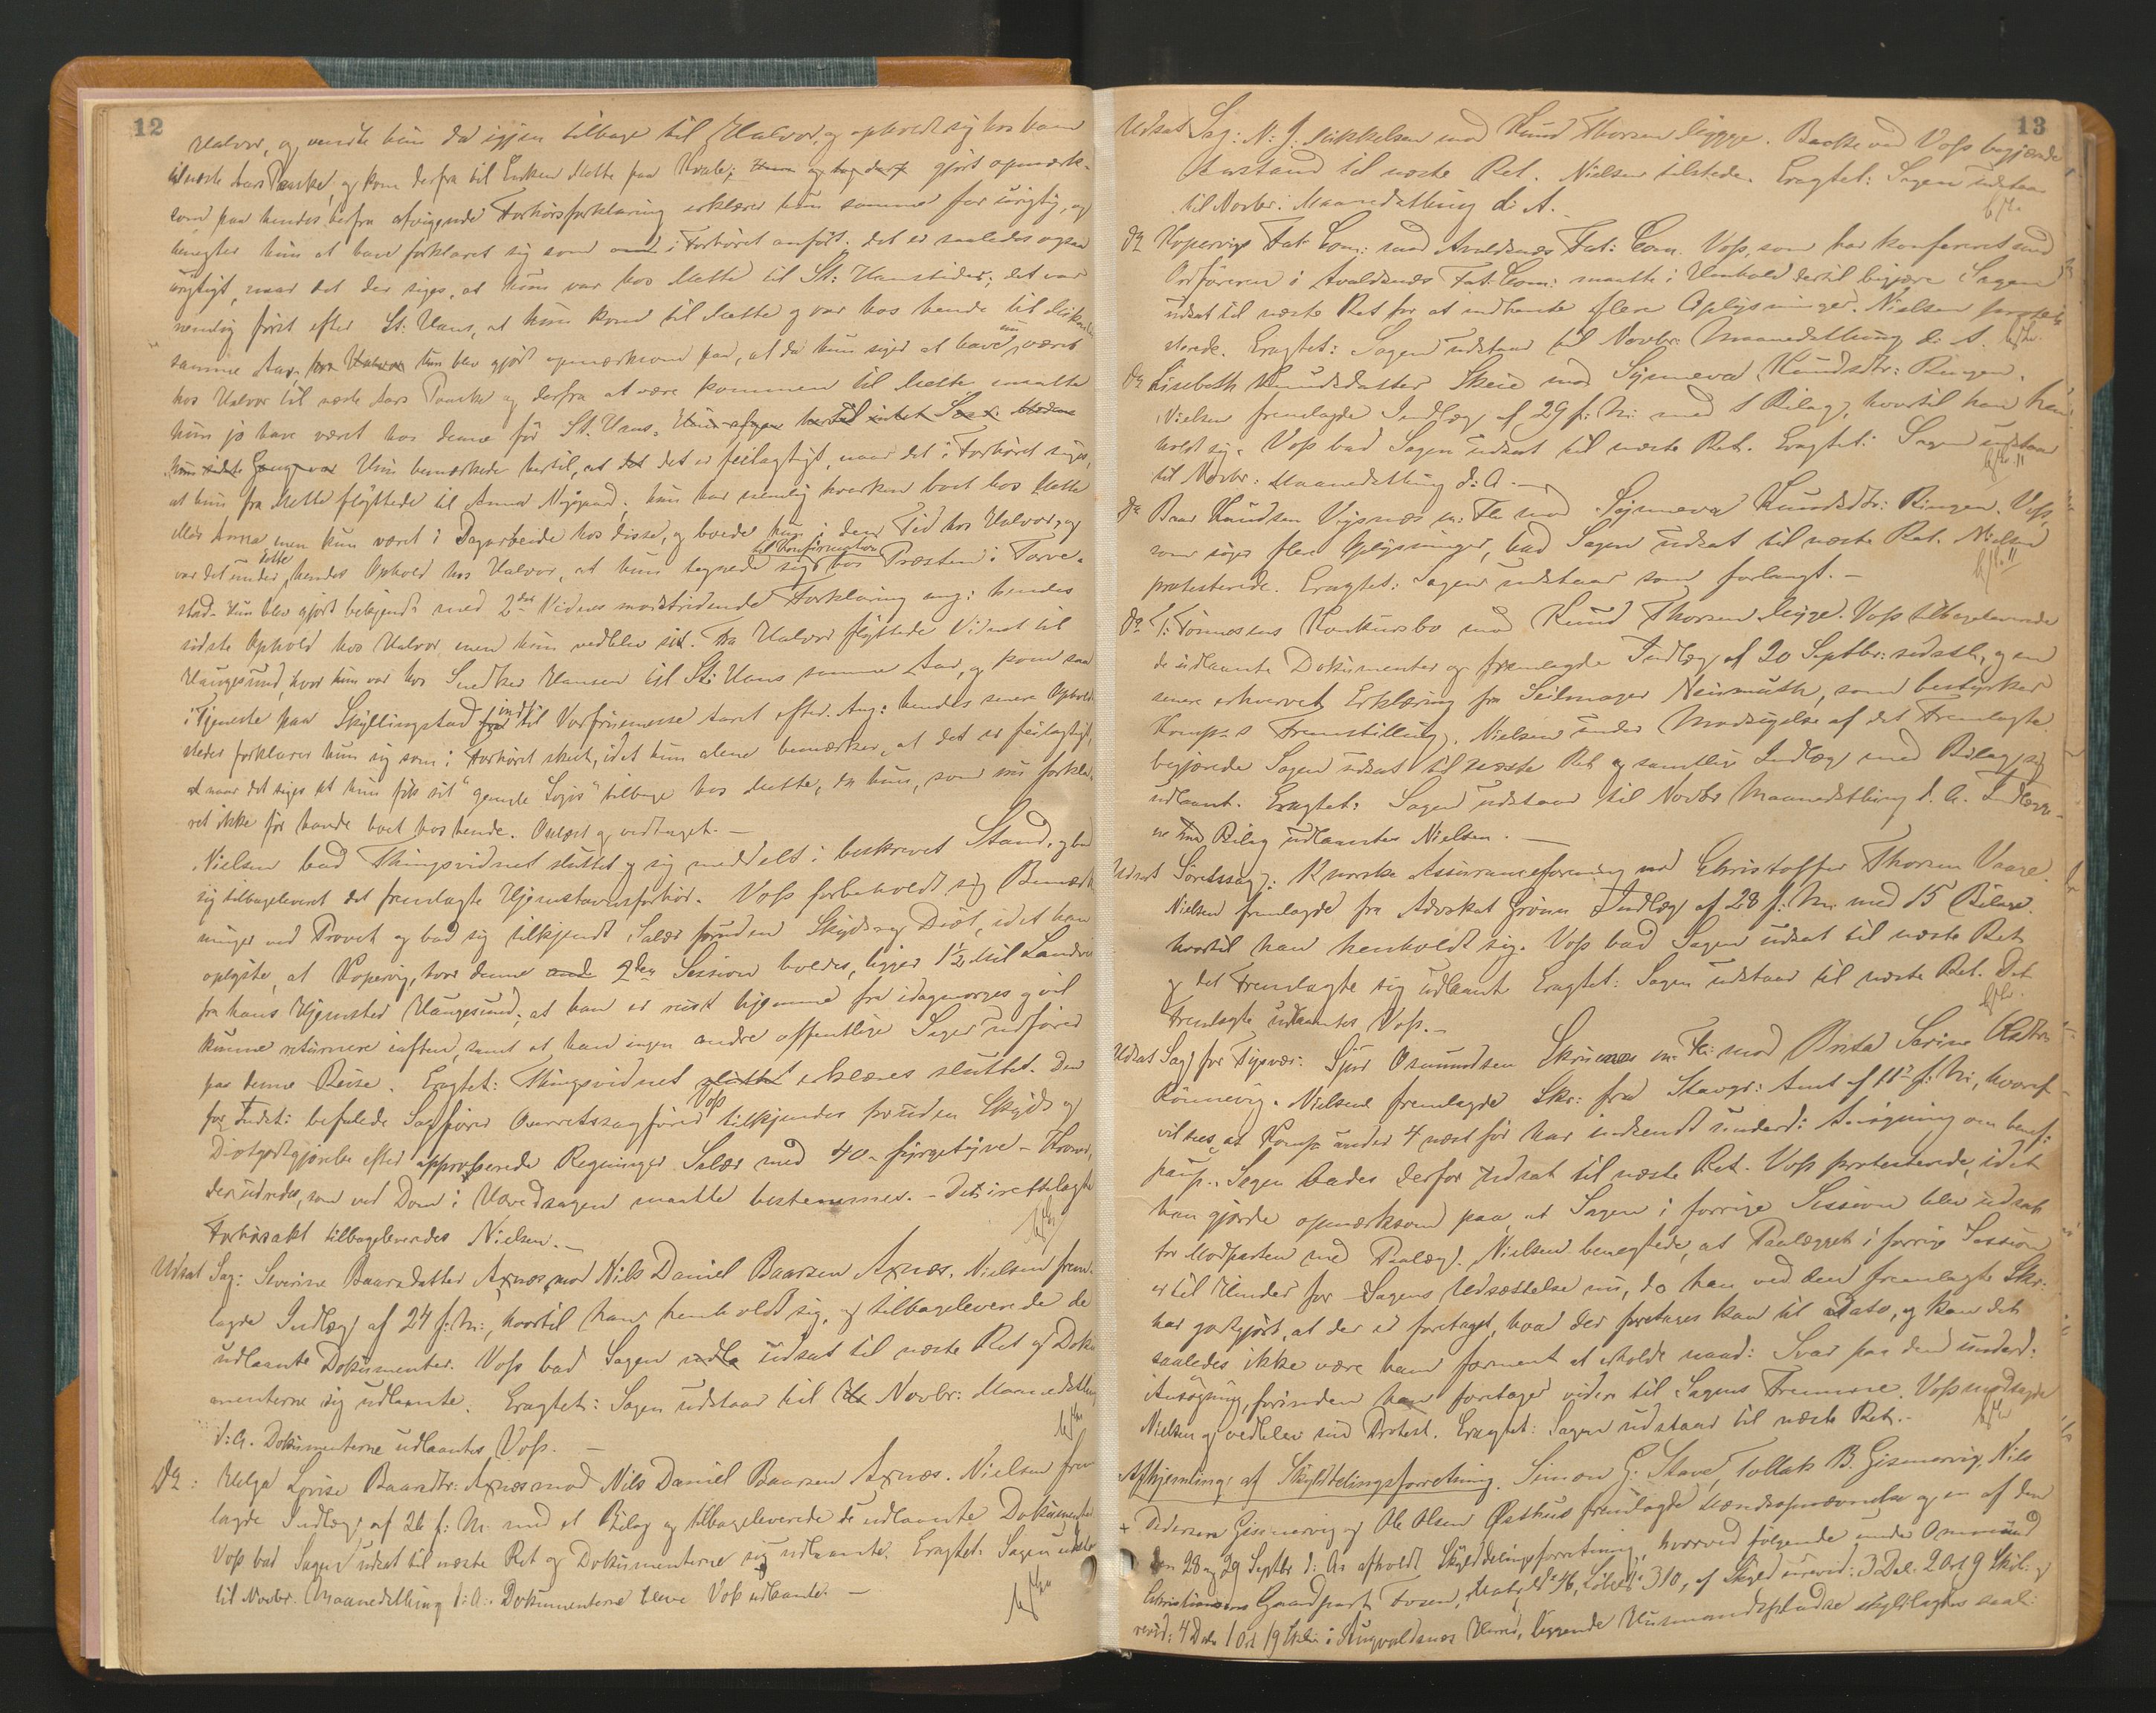 12
Halvor, og vendte hun da igjen tilbage til Halvor, og opholdt sig hos ham
til næste Aars Paaske, og kom derfra til Enken Mette paa Hvale; gjort opmærk-
som paa hendes herfra afvigende Forhørsforklaring erklærer hun samme for urigtig, og
benegter hun at have forklaret sig som i Forhøret anført. det er saaledes ogsaa
urigtigt, naar det der siges, at hun var hos Mette til St: Hanstider; det var
nemlig først efter St: Hans, at hun kom til Mette og var hos hende til
samme Aar. hun blev gjort opmærksom paa, at da hun siger at have nu været
hos Halvor til næste Aars Paaske og derfra at være kommen til Mette maatte
hun jo have været hos denne før St. Hans. Hun siger hertil intet
Hun bemærkede hertil, at det er feilagtigt, naar det i Forhøret siges,
at hun fra Mette flyttede til Anna Nygaard; hun har nemlig hverken boet hos Mette
eller Anna men kun været i Dagarbeide hos disse, og boede hun i den Tid hos Halvor, og
var det under dette hendes Ophold hos Halvor, at hun tegnede sig til Konfirmation hos Præsten i Torve-
stad. Hun blev gjort bekjendt med 2det Vidnes modstridende Forklaring ang: hendes
sidste Ophold hos Halvor, men hun vedblev sit. Fra Halvor flyttede Vidnet til
Haugesund, hvor hun var hos Snedker Hansen til St: Hans samme Aar, og kom saa
i Tjeneste paa Skjillingstad indtil Vorfruemesse Aaret efter. Ang: hendes senere Opholds-
steder forklarer hun sig som i Forhøret skeet, idet hun alene bemærker, at det er feilagtigt,
naar det siges at hun fik sit "gamle Logis" tilbage hos Mette, da hun, som nu forkla-
ret ikke før havde boet hos hende. Oplæst og vedtaget. —
Nielsen bad Thingsvidnet sluttet og sig meddelt i beskrevet Stand, og bad
sig tilbageleveret det fremlagte Hjemstavnsforhør. Voss forbeholdt sig Bemærk-
ninger ved Provet og bad sig tilkjendt Salær foruden Skyds og Diæt, idet han
oplyste, at Kopervig, hvor denne 2den Session holdes, ligger 1½ Mil Landvei
fra hans Hjemsted Haugesund; at han er reist hjemme fra idagmorges og vil
kunne returnere iaften, samt at han ingen andre offentlige Sager udfører
paa denne Reise. Eragtet: Thingsvidnet erklæres sluttet. Den
for Indst: befalede Sagfører Overretssagfører Voss tilkjendes foruden Skyds og
Diætgodtgjørelse efter approberede Regninger Salær med 40 – fyrgetyve – Kroner,
der udredes, som ved Dom i Hovedsagen maatte bestemmes. – Det irettelagte
Forhørsakt tilbageleveredes Nielsen. —
Udsat Sag: Severine Baarsdatter Axnæs mod Nils Daniel Baarsen Axnæs. Nielsen frem-
lagde Indlæg af 24 f: M:, hvortil han henholdt sig, og tilbageleverede de
udlaante Dokumenter. Voss bad Sagen udsat til næste Ret og Doku-
menterne sig udlaante. Eragtet: Sagen udstaar til Novbr: Maanedsthing
d: A. Dokumenterne udlaantes Voss. —
Do: Helga Lovise Baarsdtr: Axnæs mod Nils Daniel Baarsen Axnæs. Nielsen frem-
lagde Indlæg af 26 f: M: med et Bilag og tilbageleverede de udlaante Dokumenter
Voss bad Sagen udsat til næste Ret og Dokumenterne sig udlaante. Eragtet: Sagen udstaar
til Novbr. Maanedsthing d: A. Dokumenterne bleve Voss udlaante. —
13
Udsat Sag: N. J. Mikkelsen mod Knud Thorsen Lygge. Backe ved Voss begjærede
Anstand til næste Ret. Nielsen tilstede. Eragtet: Sagen udstaar
til Novbr: Maanedsthing d: A. —
Do Kopervigs Fat: Com: mod Avaldsnæs Fat: Com. Voss, som har konfereret med
Ordføreren i Avaldsnæs Fat: Com: maatte i Henhold dertil begjære Sagen
udsat til næste Ret for at indhente flere Oplysninger. Nielsen protest-
erede. Eragtet: Sagen udstaar til Novbr: Maanedsthing d: A.
Do Lisebeth Knudsdatter Skeie mod Synneva Knudsdtr: Ringen.
Nielsen fremlagde Indlæg af 29 f: M: med 1 Bilag, hvortil han hen-
holdt sig. Voss bad Sagen udsat til næste Ret. Eragtet: Sagen udstaar
til Novbr: Maanedsthing d: A. —
Do Baar Knudsen Vigsnæs m: Fl: mod Synneva Knudsdtr: Ringen. Voss,
som søger flere Oplysninger, bad Sagen udsat til næste Ret. Nielsen
protesterede. Eragtet: Sagen udstaar som forlangt. —
Do T. Tønnesens Konkursbo mod Knud Thorsen Lygge. Voss tilbageleverede
de udlaante Dokumenter og fremlagde Indlæg af 20 Septbr: sidstl:, og en
senere erhvervet Erklæring fra Seilmager Neumuth, som bestyrker
Komp:s Fremstilling. Nielsen under Modsigelse af det Fremlagte
begjærede Sagen udsat til næste Ret og samtlige Indlæg med Bilag sig
udlaant. Eragtet: Sagen udstaar til Novbr Maanedsthing d. A. Indlægge-
ne med Bilag udlaantes Nielsen. —
Udsat Søretssag: K norske Assuranceforening mod Christoffer Thorsen Vaage.
Nielsen fremlagde fra Advokat Grönn Indlæg af 28 f: M: med 15 Bilage,
hvortil han henholdt sig. Voss bad Sagen udsat til næste Ret
og det Fremlagte sig udlaant. Eragtet: Sagen udstaar til næste Ret. Det
Fremlagte udlaantes Voss. —
Udsat Sag for Tysvær: Sjur Osmundsen m: Fl: mod Brita Serine
Rønnevig. Nielsen fremlagde Skr: fra Stavgr: Amt af 11te f: M:, hvoraf
vil sees, at Komp: under 4 næst før har indsendt underd: Ansøgning om benef:
paup:. Sagen bades derfor udsat til næste Ret. Voss protesterede, idet
han gjorde opmærksom paa, at Sagen i forrige Session blev udsat
for Modparten med Paalæg. Nielsen benegtede, at Paalægget i forrige Session
er til Hinder for Sagens Udsættelse nu, da han ved den fremlagte Skr:
har godtgjort, at der er foretaget, hvad der foretages kan til Dato, og kan det
saaledes ikke være ham forment at erholde naad: Svar paa den underd:
Ansøgning, forinden han foretager videre til Sagens Fremme. Voss modsagde
Nielsen og vedblev sin Protest. Eragtet: Sagen udstaar til næste Ret. —
Afhjemling af Skylddelingsforretning. Simon G: Stave, Tollak B. Gismervig, Nils
Pedersen Gismervig og Ole Olsen Østhus fremlagde Mændsopnævnelse og en af dem
den 28 og 29 Septbr d: A: afholdt Skylddelingsforretning, hvorved følgende under Ommund
Christiansens Gaardpart Fosen, Matr: No 46, Løbe No 310, af Skyld urevid: 3 Dal. 2 Ort 9 Skil: og
revid: 4 Daler 1 Ort 19 Skil: i Augvaldsnæs Herred, liggende Husmandspladse skyldlagdes saal: